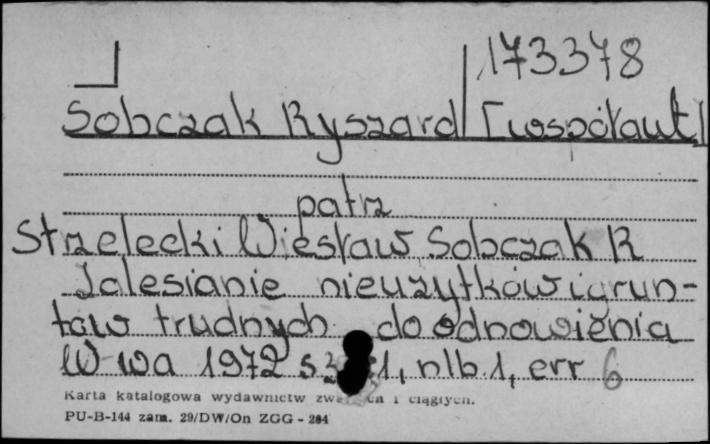 173378
Sobczak Ryszard [współaut]
patrz
Strzelecki Wiesław, Sobczak R
Zalesianie nieużytków i grun-
tów trudnych do odnowienia
W-wa 1972 s 1, nlb 1, err 6
Karta katalogowa wydawnictw i ciągłych.
PU-B-144 zam. 29/DW/On ZGG - 284